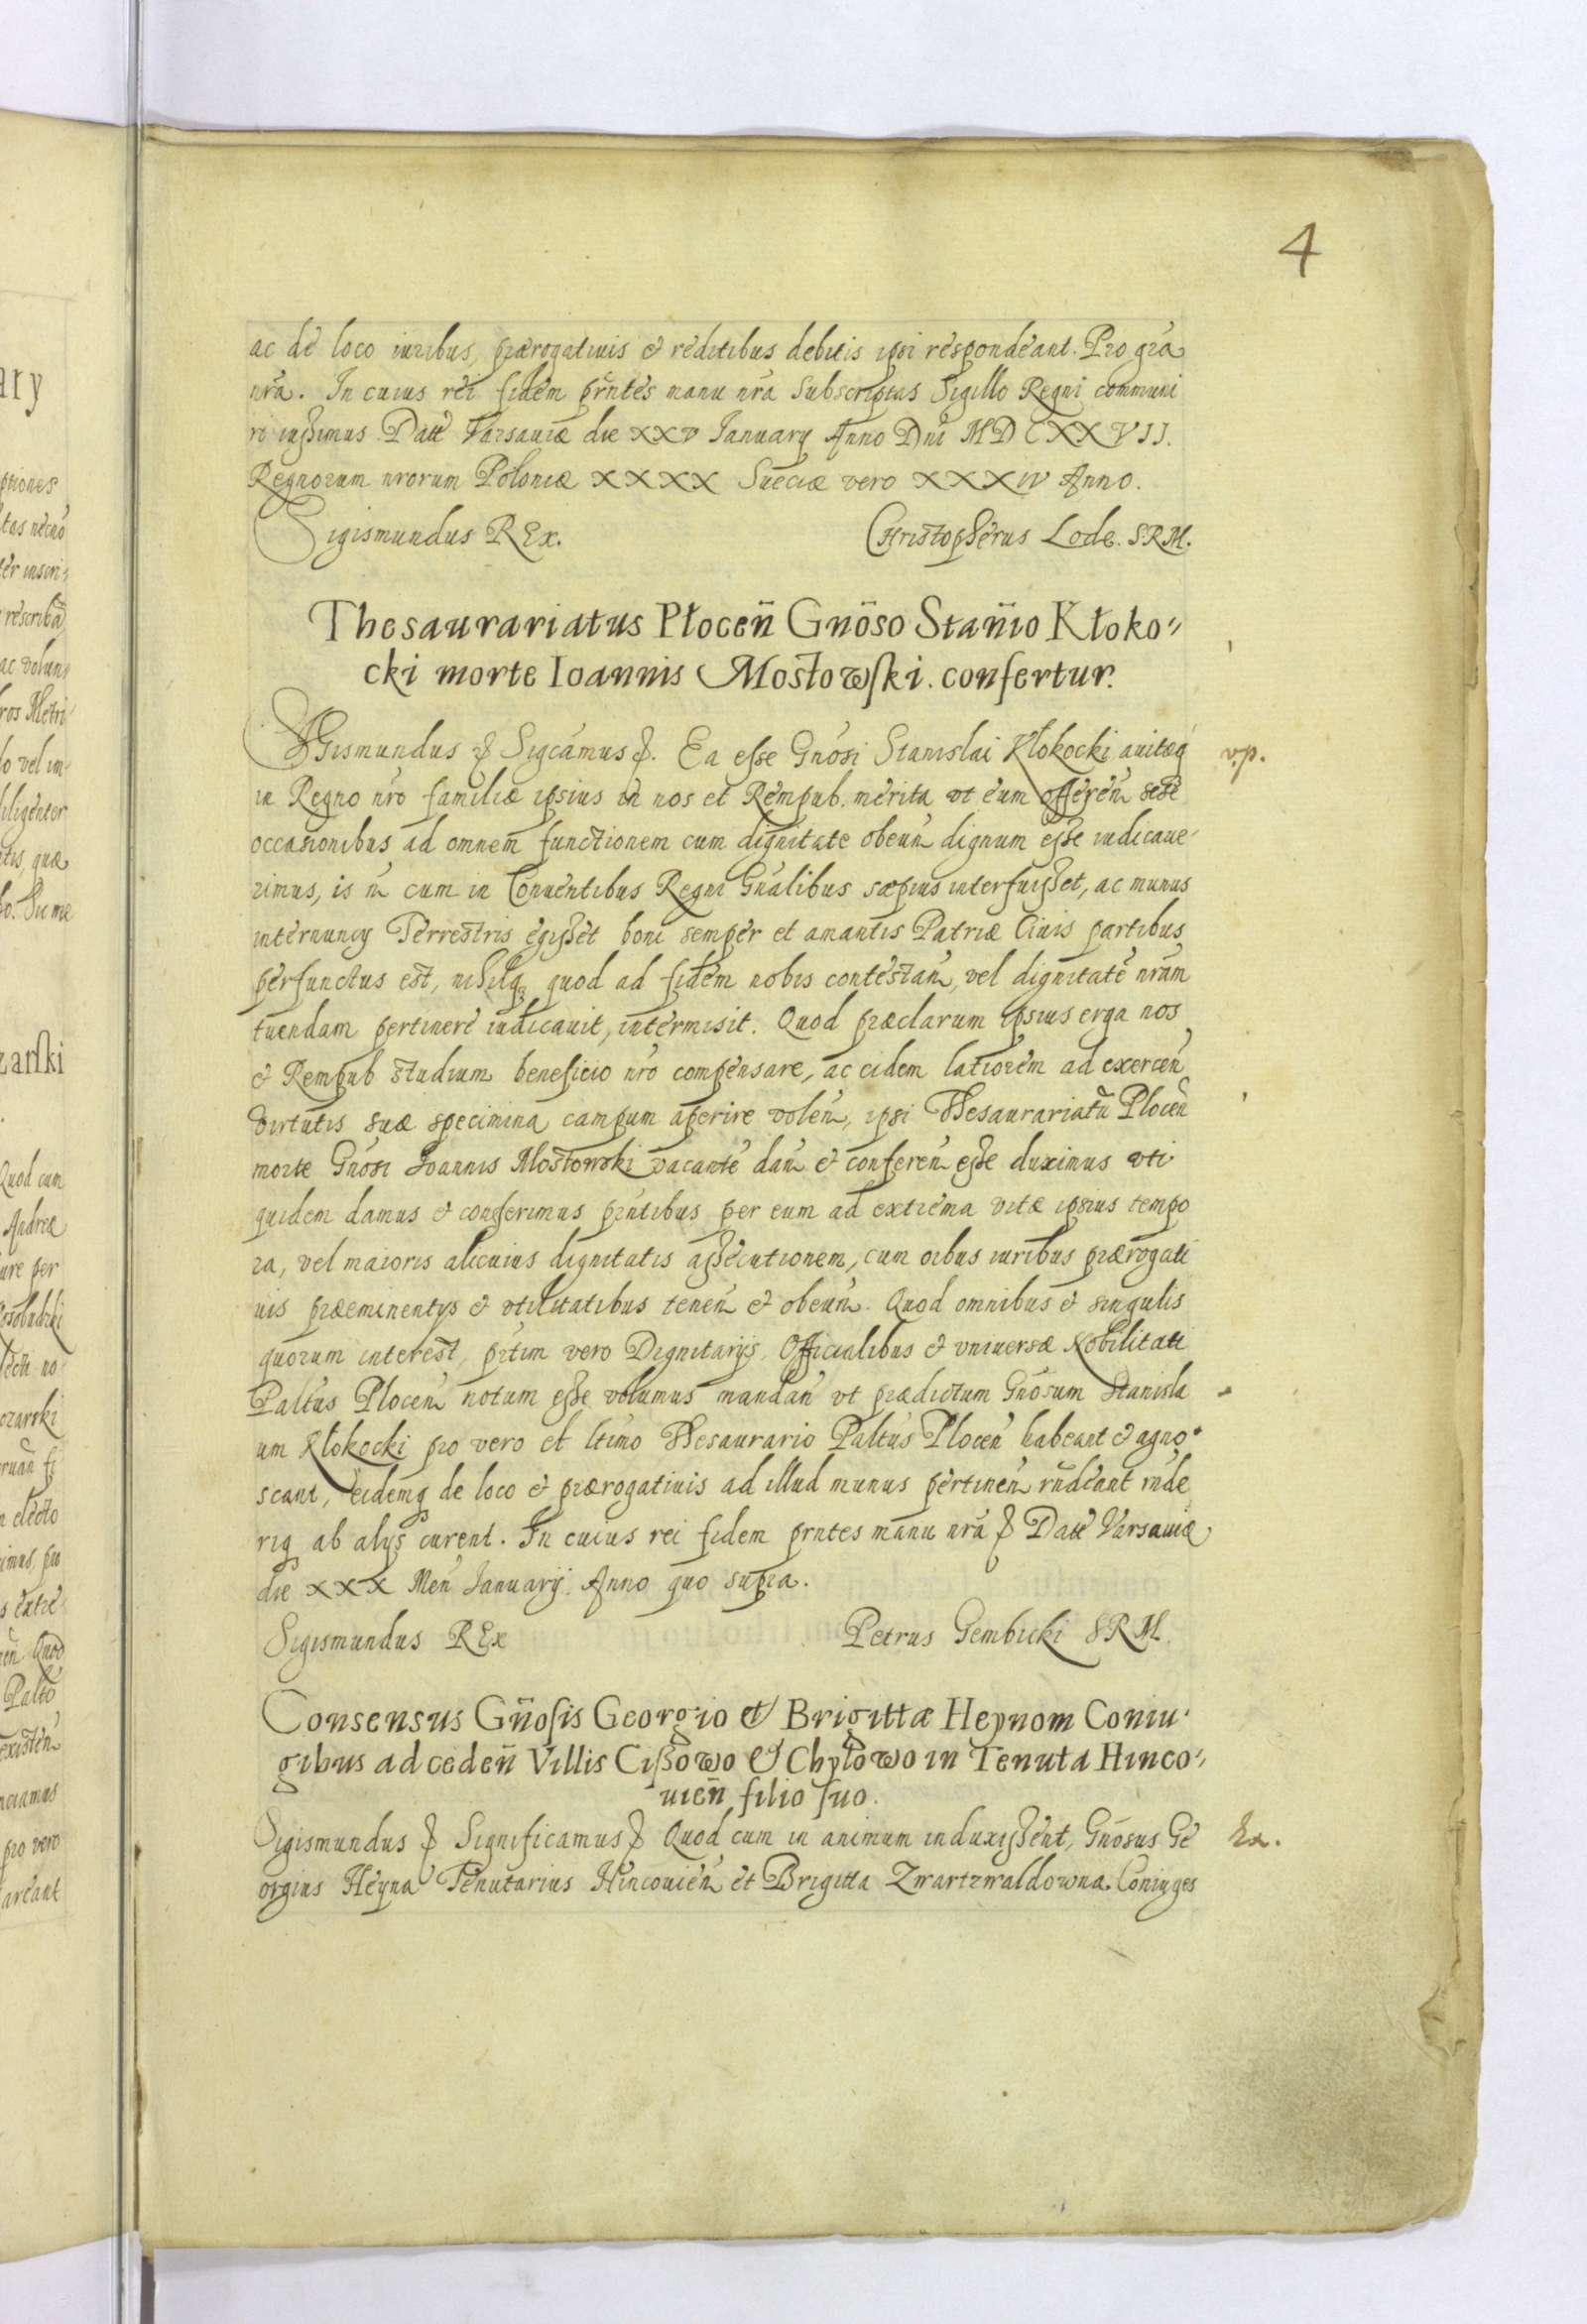 4
ac de loco iuribus, prærogatiuis & reditibus debitis ipsi respondeant. Pro gra̅
nra̅. In cuius rei fidem prn̅tes manu nra̅ subscriptas Sigillo Regni communi
ri iussimus. Datt Varsauiæ die XXV January Anno Dni̅ MDCXXVII.
Regnorum nrorum Poloniæ XXXX Sueciæ vero XXXIV Anno.
Sigismundus REx. Christopherus Lode. SRM.
Thesaurariatus Płocen̅ Gnōso Stan̅io Kłoko〃
cki morte Ioannis Mostowſki. confertur.
Sigismundus & Sigcamus &. Ea esse Gnosi Stanislai Kłokocki auitaq v.p.
in Regno nro̅ familiæ ipsius in nos et Rempub. merita vt eum offeren̅ sese
occasionibus ad omnem functionem cum dignitate obeun̅ dignum esse iudicaue-
rimus, is n̅ cum in Conuentibus Regni Gnalibus sæpius interfuisset, ac munus
internuncy Terrestris egisset boni semper et amantis Patriæ Ciuis partibus
perfunctus est, nihilq quod ad fidem nobis contestan̅, vel dignitate̅ nram̅
tuendam pertinere iudicauit, intermisit. Quod præclarum ipsius erga nos
& Rempub studium beneficio nro̅ compensare, ac eidem latiorem ad exercen̅
virtutis suæ specimina campum aperire volen̅, ipsi Thesaurariatu̅ Plocen̅
morte Gnosi Ioannis Mostowski vacante̅ dan̅ & conferen̅ esse duximus vti
quidem damus & conferimus prn̅tibus per eum ad extrema vitæ ipsius tempo
ra, vel maioris alicuius dignitatis assecutionem, cum oibus iuribus prærogati
uis præeminentys & vtilitatibus tenen̅ & obeun̅. Quod omnibus & singulis
quorum interest, prt̅im vero Dignitarijs, Officialibus & vniuersæ Nobilitati
Paltus Plocen̅ notum esse volumus mandan̅ vt prædictum Gnosum Stanisla
um Kłokocki pro vero et ltimo Thesaurario Paltus Plocen̅ habeant & agno
scant, eidemq de loco & prærogatiuis ad illud munus pertinen̅ rn̅deant rn̅de
riq ab alys curent. In cuius rei fidem prntes manu nra̅ & Datt Varsauiæ
die XXX Men̅ Januarij. Anno quo supra.
Sigismundus REx Petrus Gembicki SRM.
Consensus Gn̅oſis Georgio & Brigittæ Heynom Coniu-
gibus ad ceden̅ Villis Cißowo & Chyłowo in Tenuta Hinco-
uien̅ filio ſuo.
Sigismundus & Significamus & Quod cum in animum induxissent, Gnosus Ge Ex.
orgius Heyna Tenutarius Hincouien̅ et Brigitta Zwartzwaldowna Coniuges